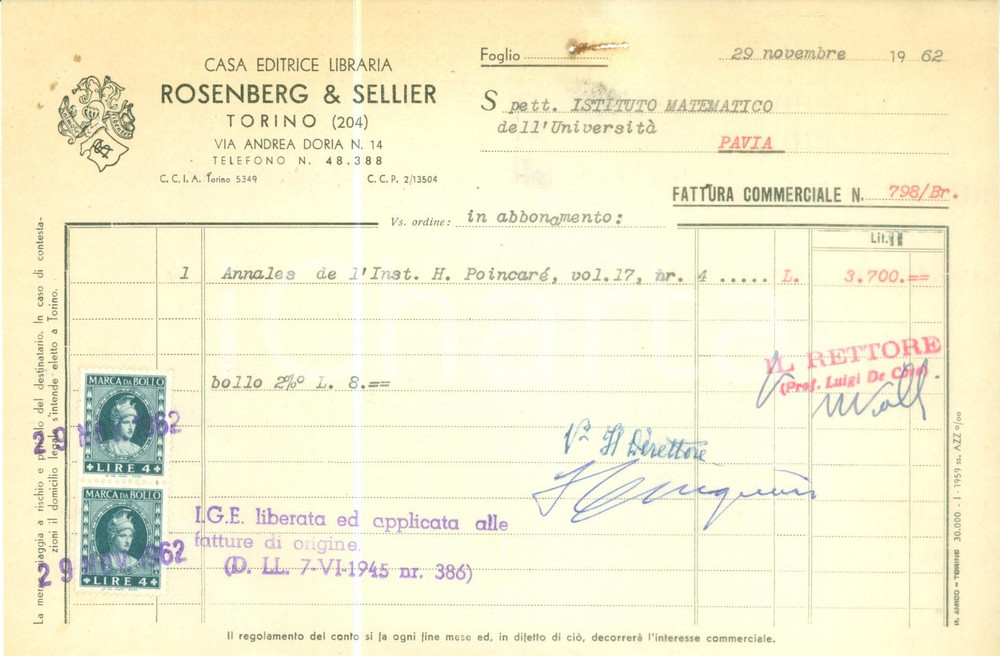 CASA EDITRICE LIBRARIA
ROSENBERG & SELLIER
TORINO (204)
VIA ANDREA DORIA N. 14
TELEFONO N. 48.388
C. C. I. A. Torino 5349 C. C. P. 2/13504
Foglio
29 novembre 1962
Spett. ISTITUTO MATEMATICO
dell'Università
PAVIA
FATTURA COMMERCIALE N. 798/Br.
Vs. ordine: in abbonamento:
Lit.
1 Annales de l'Inst. H. Poincaré, vol.17, nr. 4 ..... L. 3.700.==
IL RETTORE
(Prof. Luigi De
bollo 2%º L. 8.==
Il Direttore
MARCA DA BOLLO
LIRE 4
MARCA DA BOLLO
LIRE 4
29 62
29 NOV 1962
I.G.E. liberata ed applicata alle
fatture di origine.
(D. LL. 7-VI-1945 nr. 386)
Il regolamento del conto si fa ogni fine mese ed, in difetto di ciò, decorrerà l'interesse commerciale.
La merce viaggia a rischio e pericolo del destinatario. In caso di contesta-
zioni il domicilio legale s'intende eletto a Torino.
AMICO - TORINO 30.000 - I - 1959 ss. AZZ º/oo